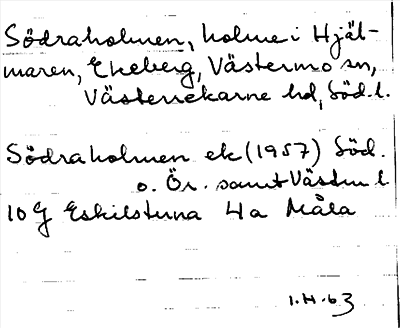 Södraholmen, holme i Hjäl-
maren, Ekeberg, Västermo sn,
Västerrekarne hd, Söd. l.
Södraholmen ek (1957) Söd.
o. Ör. samt Västm l.
10 G Eskilstuna 4a Måla
1.H.63